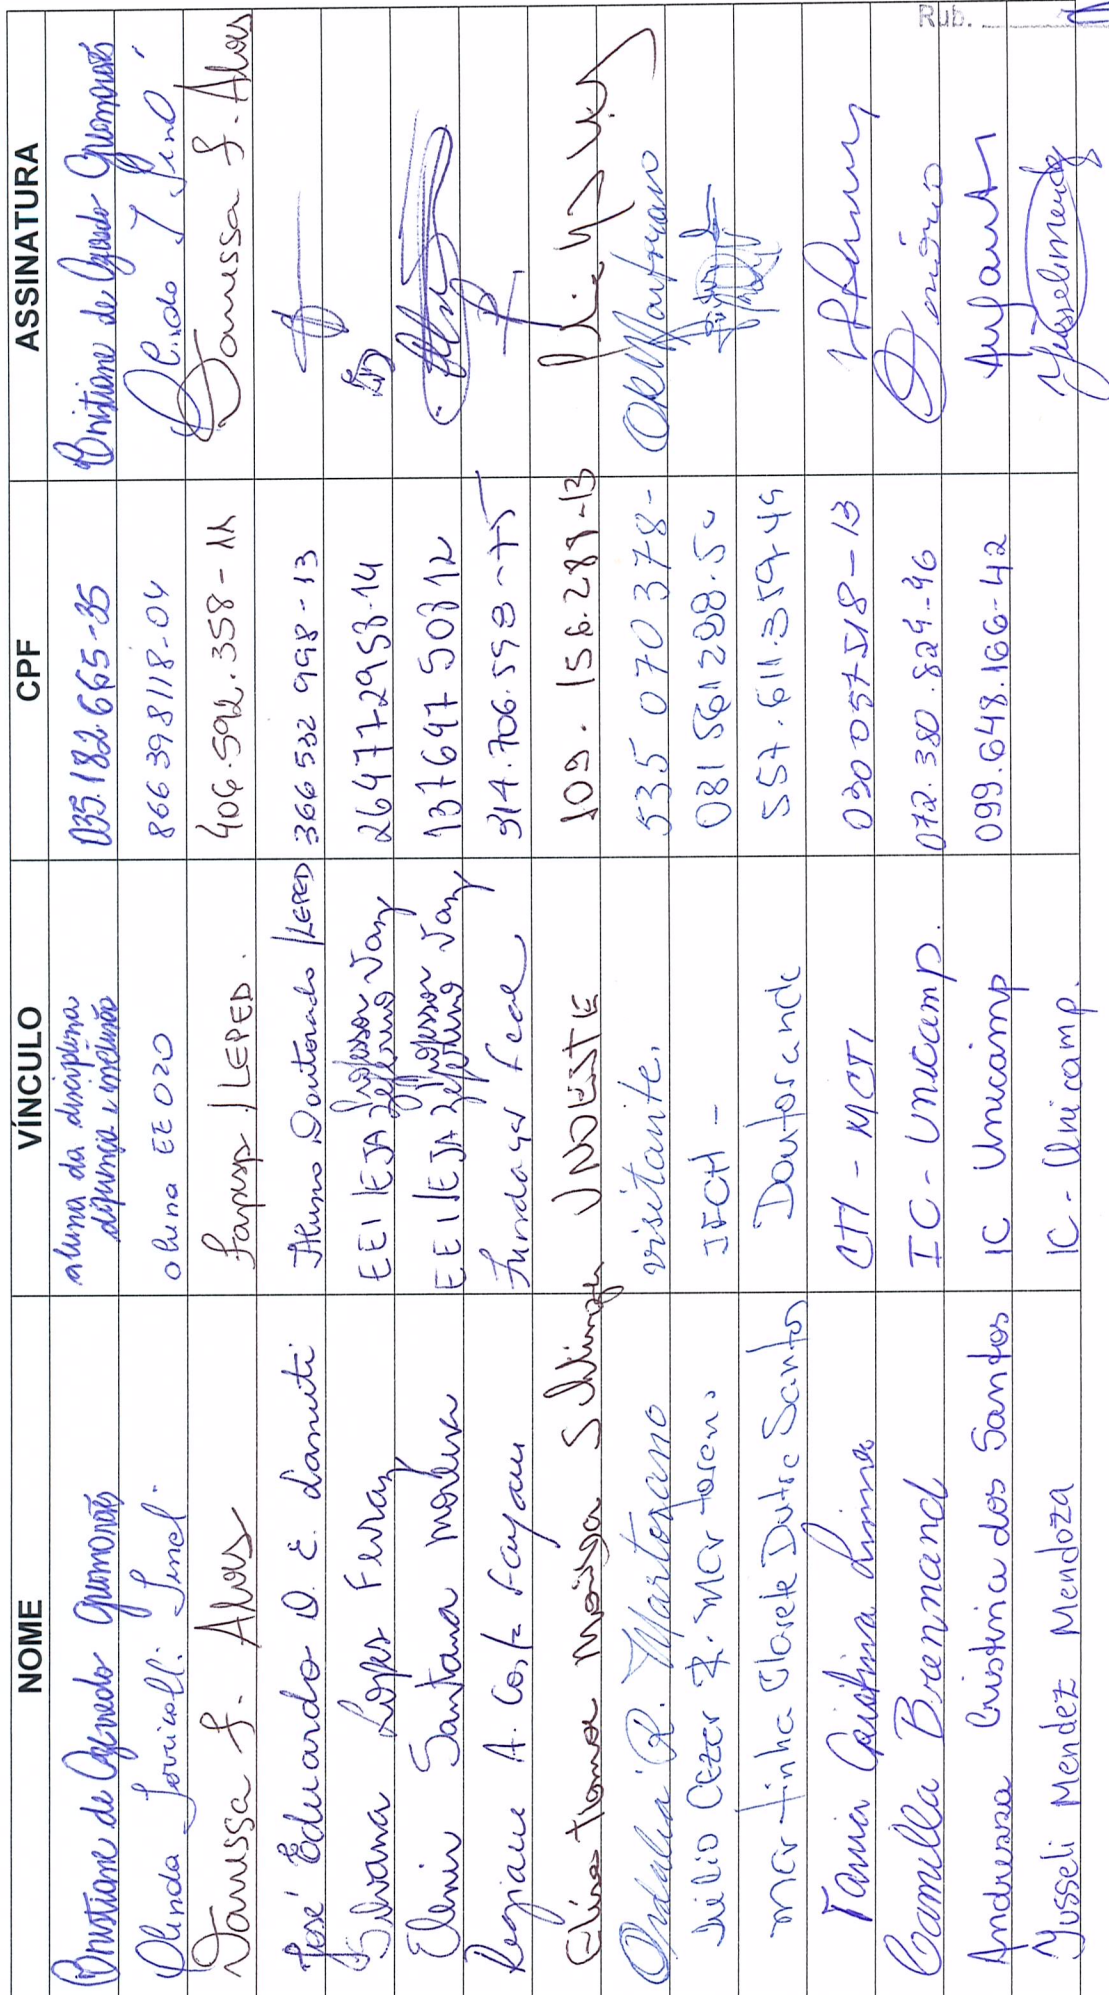 Rub.
NOME VÍNCULO CPF ASSINATURA
Cristiane de Azevedo Guimarães aluna da disciplina diferença e inclusão 035.182.665-35 Cristiane de Azevedo Guimarães
Olinda 866 398118-04 Olinda
Tarussa f. Alves Fapesp / LEPED. 406.592.358-11 Tarussa f. Alves
José Eduardo O. E. Lanuti Aluno Doutorado / LEPED 366 532 998-13
Silvana Lopes Ferraz EEI IEJA Professor Zeferino Vaz 264772958-14
Elenir Santana Moreira E.E I IEJA Professor Zeferino Vaz 137647508 12
Regiane A. Costa 314.706.598-75
Maissa UNOESTE 109.156.289-13
Ordalia R. Martorano visitante. 535 070 378- ORMartorano
Júlio Cezar Z. Martorano 081 561 288.50
Martinha Clarete Dutra Santos Doutoranda 557.611.359-49
Tania Cristina Lima CTI - MCTI 030 057518-13
Camilla Brennand IC - Unicamp. 072.380.829-96
Andressa Cristina dos Santos IC Unicamp 099.648.166-42
Yusseli Mendez Mendoza IC - Unicamp. Yusselimendez